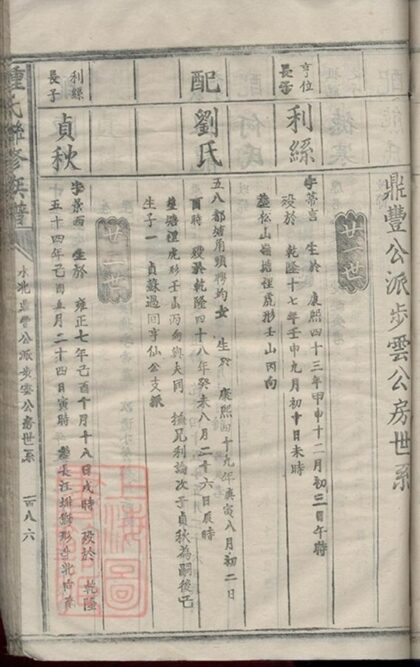 鼎豐公派步雲公房世系
亨位
長子
利綠
廿一世
字常言 生於 康熙四十三年甲申十二月初三日午時
殁於 乾隆十七年壬申九月初十日未時
葬松山嶺塘裡虎形壬山丙向
配
劉氏
女 生於 康熙四十九年庚寅八月初二日
酉時 殁於乾隆四十八年癸未八月二十六日辰時
葬塘裡虎形壬山丙向與夫同 撫兄利論次子貞秋為嗣後己
生子一 貞蘇過回亨仙公支派
廿二世
利綠
長子
貞秋
字景西 生於 雍正七年己酉十月十八日戌時 殁於 乾隆
五十四年己酉五月二十四日寅時 葬長江排獅形
鍾氏聯修族譜
水北鼎豐公派步雲公房世系
一百八六